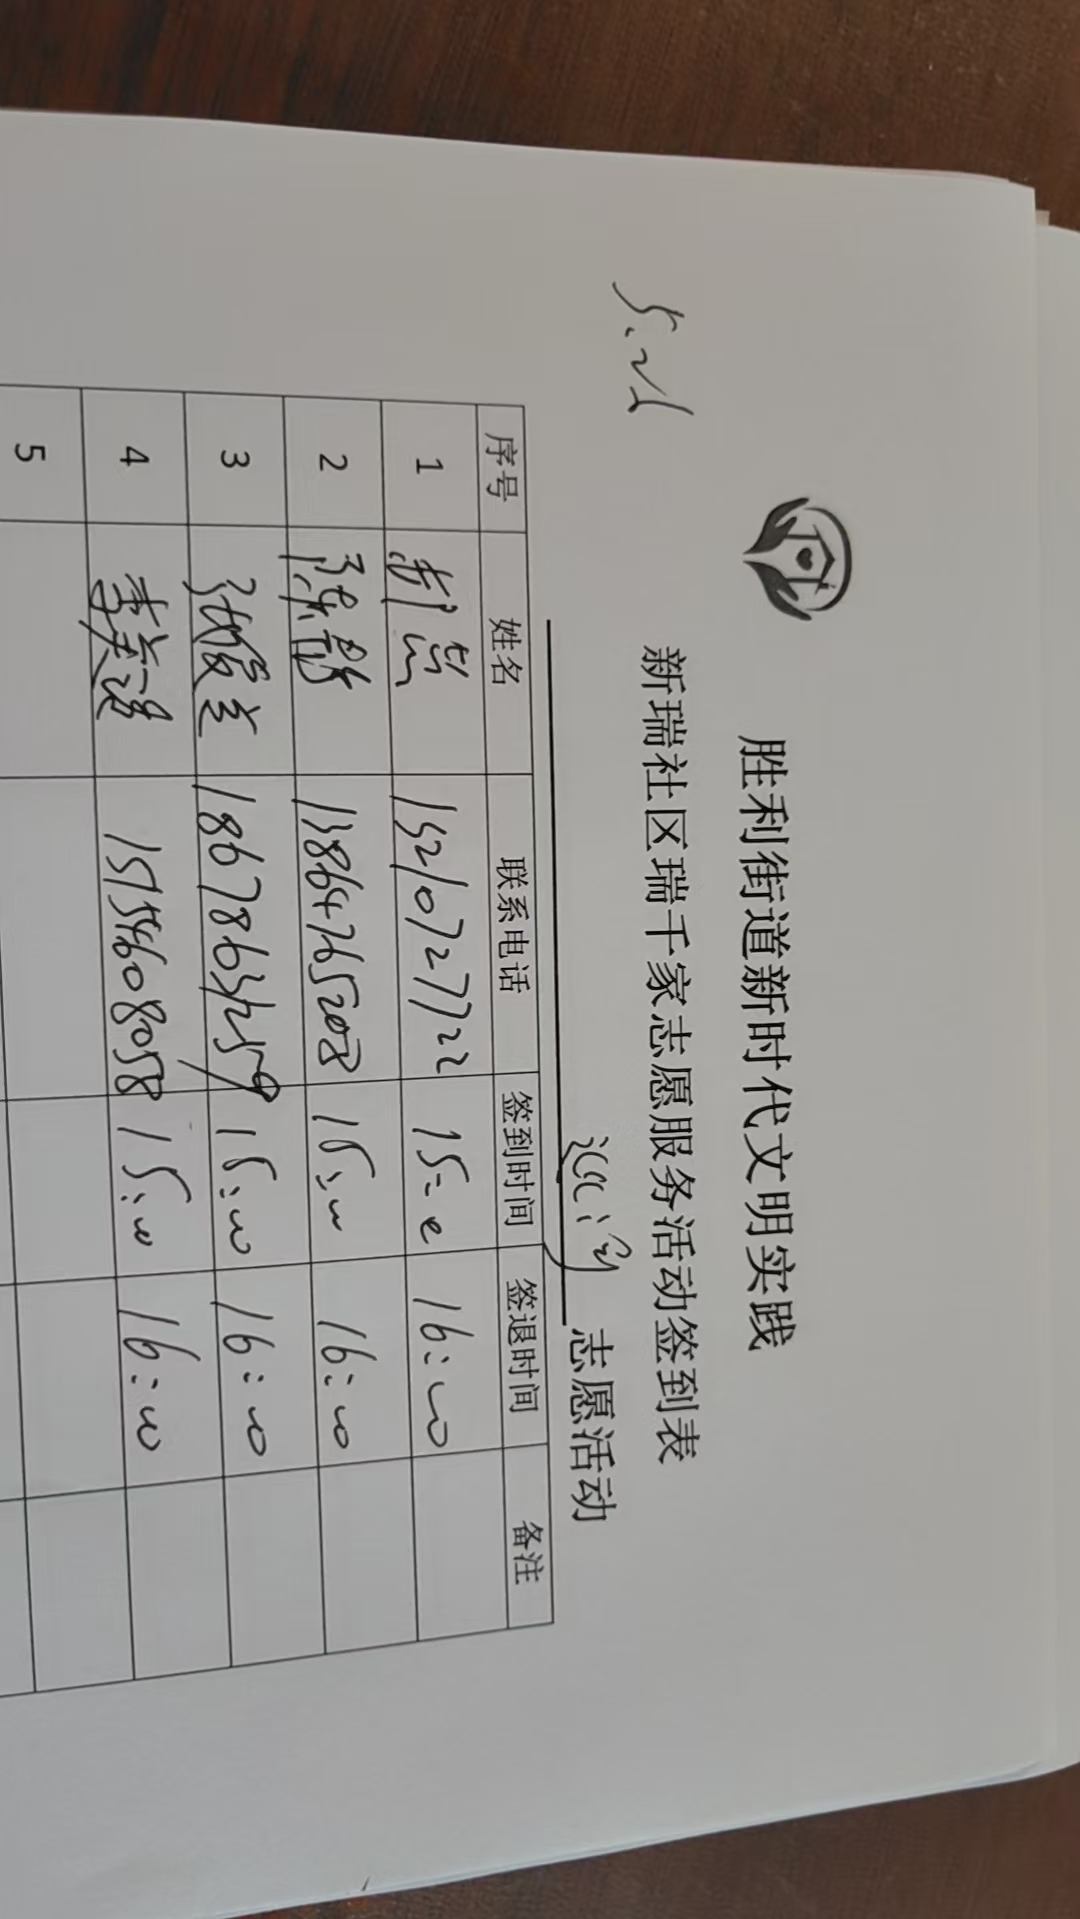 5.21
胜利街道新时代文明实践
新瑞社区瑞千家志愿服务活动签到表
志愿活动
序号 姓名 联系电话 签到时间 签退时间 备注
1 15210727722 15:00 16:00
2 陈静 13864765208 15:00 16:00
3 18678632559 15:00 16:00
4 李英强 15154608058 15:00 16:00
5